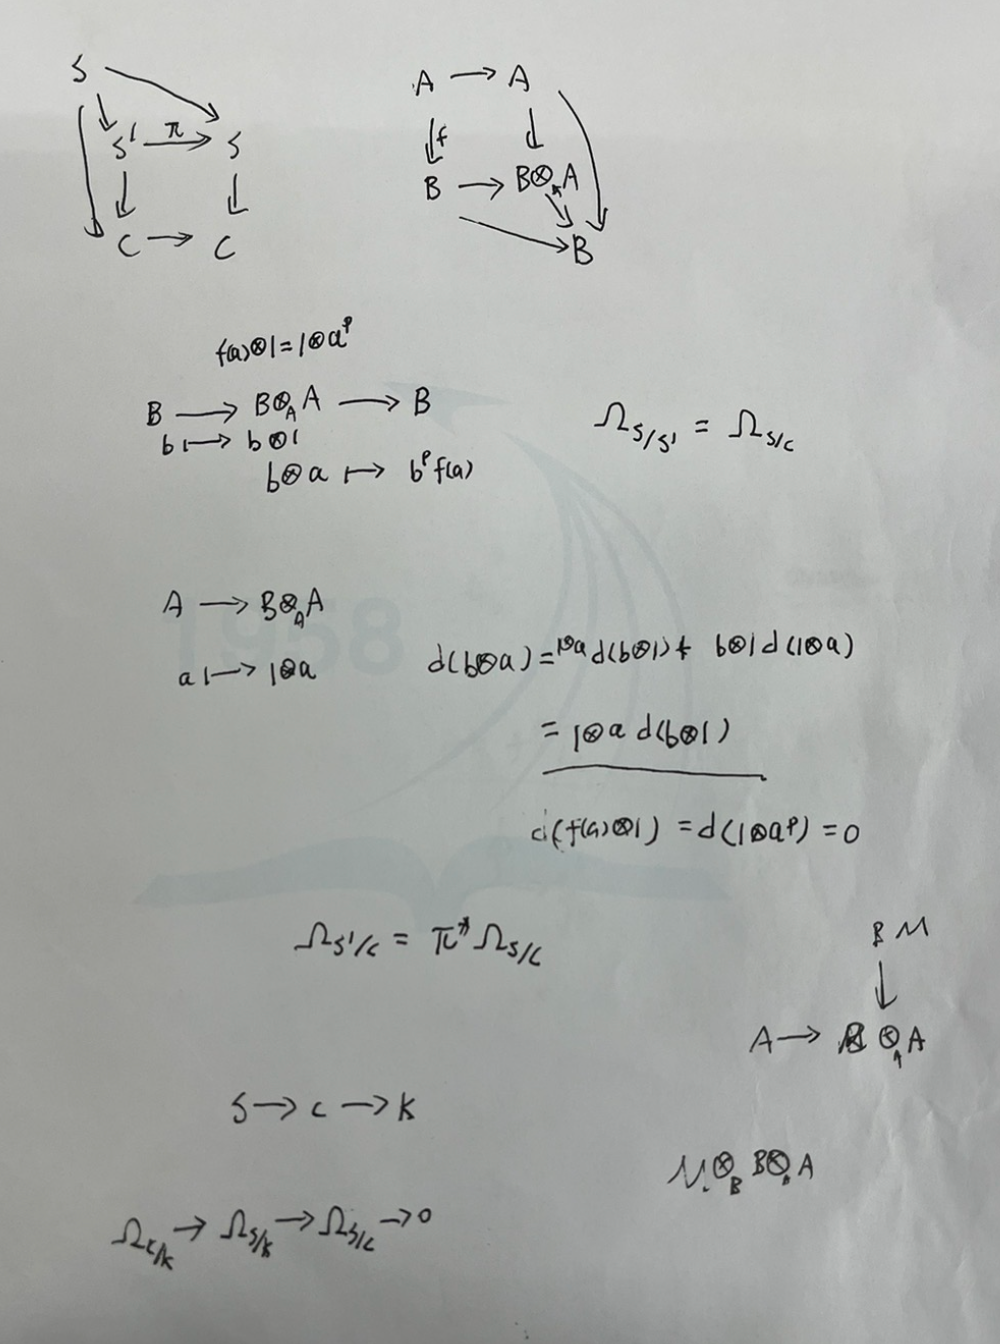 S
S' π→ S
C → C
A → A
↓f ↓
B → B⊗_A A
B
f(a)⊗1 = 1⊗a^p
B → B⊗_A A → B
b ↦ b⊗1
b⊗a ↦ b^p f(a)
Ω_{S/S'} = Ω_{S/C}
1958
A → B⊗_A A
a ↦ 1⊗a
d(b⊗a) = 1⊗a d(b⊗1) + b⊗1 d(1⊗a)
= 1⊗a d(b⊗1)
d(f(a)⊗1) = d(1⊗a^p) = 0
Ω_{S'/C} = π* Ω_{S/C}
B M
↓
A → B⊗_A A
S → C → K
M⊗_B B⊗_A A
Ω_{C/K} → Ω_{S/K} → Ω_{S/C} → 0